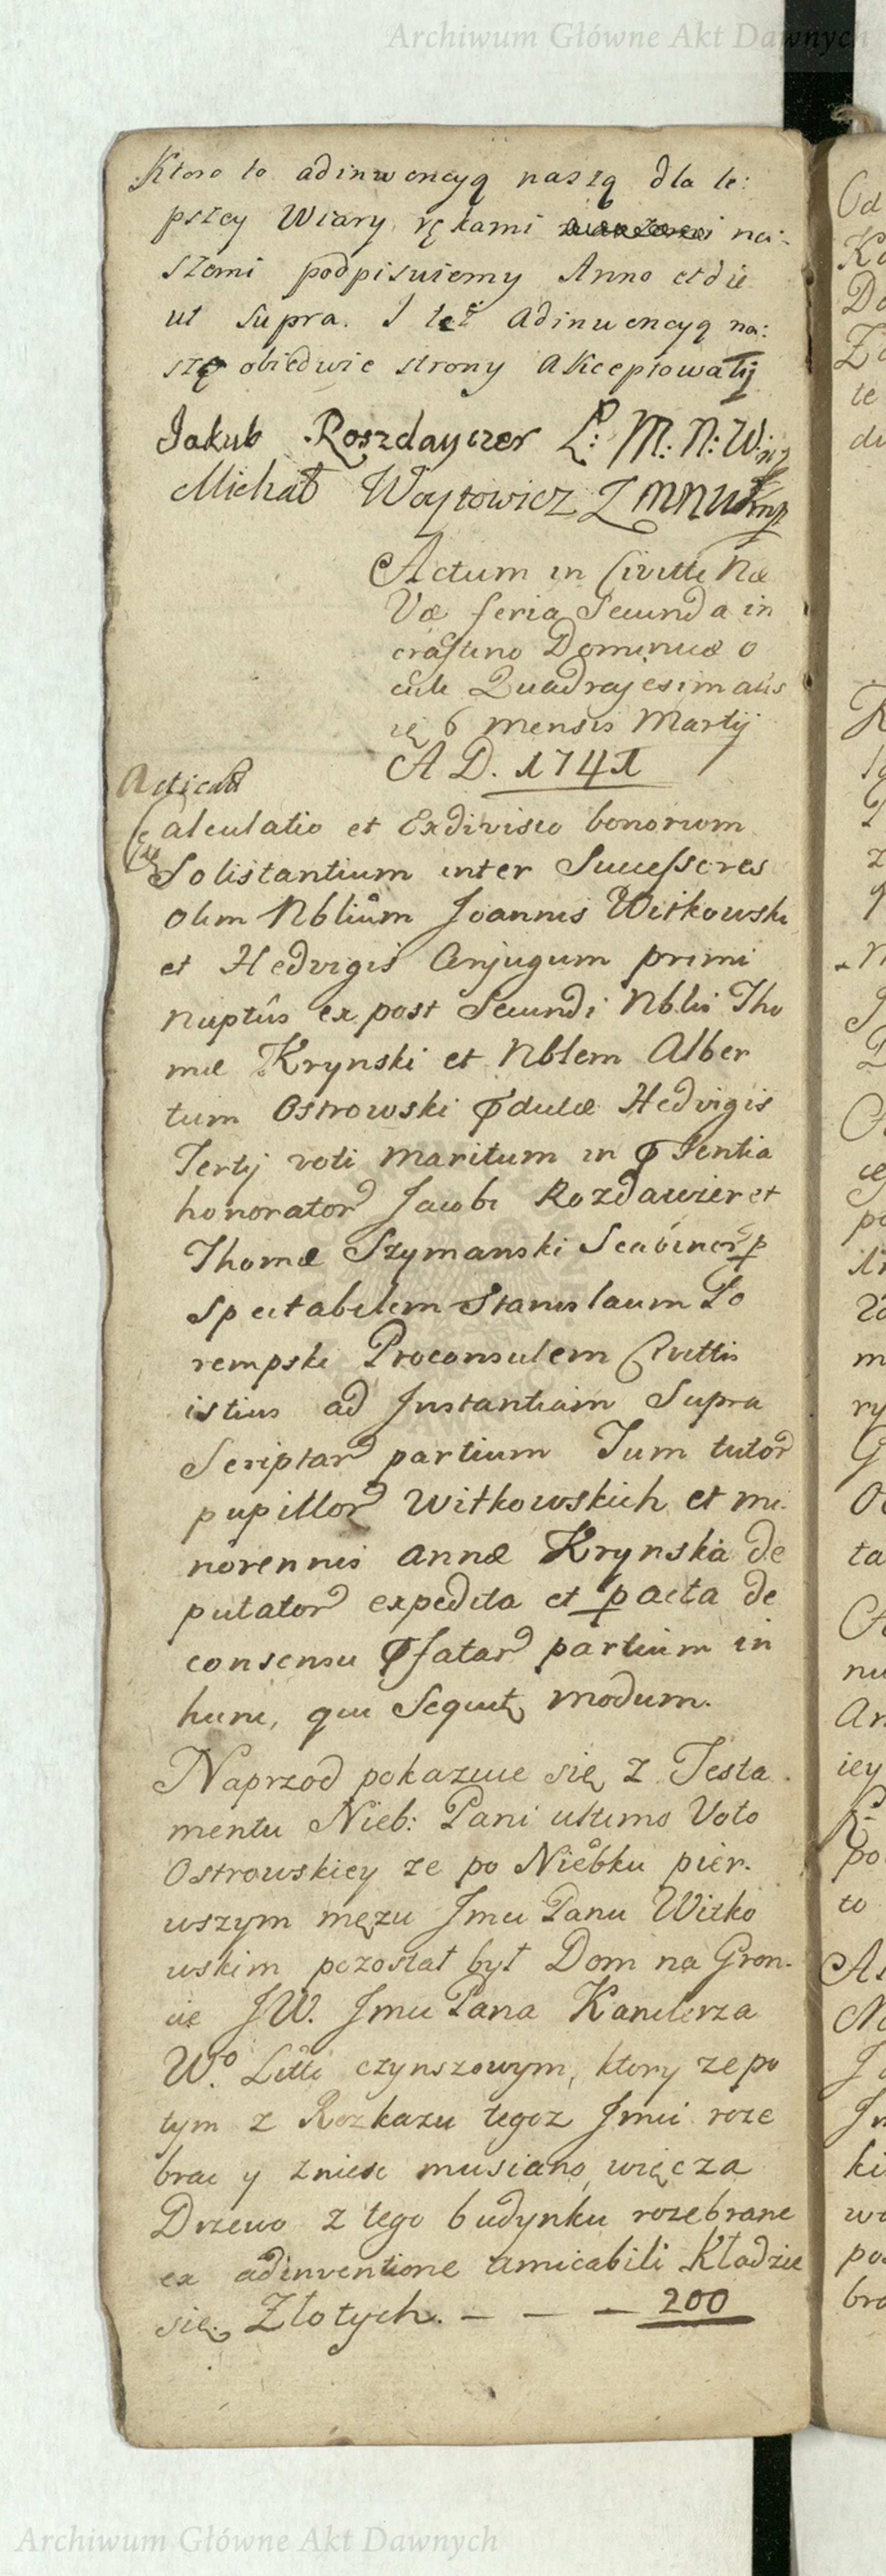 Archiwum Główne Akt Dawnych
Ktoro to adinwencyą naszą dla le:
pszey Wiary rękami na:
szemi podpisuiemy Anno et die
ut supra. I też adinwencyą na:
szę obiedwie strony akceptowały
Jakub Roszdayczer Ł: M: N: W:
Michał Woytowicz Ł M N W mp
Actum in Civitte Nœ
Vœ feria Secunda in
crastino Dominicæ O
culi Quadrajesimalis
6 mensis Martij
A D. 1741
Acticatū
Calculatio et Exdivisio bonorum
Solistantium inter Successores
olim Nblium Joannis Witkowski
et Hedvigis Conjugum primi
nuptûs ex post Secundi Nblis Tho
mæ Krynski et Nblem Alber
tum Ostrowski ꝓdictæ Hedvigis
Tertij voti maritum in ꝓsentia
honorator Jacobi Rozdawicer et
Thomæ Szymanski Scabinor ꝑ
Spectabilem Stanislaum Po
rempski Proconsulem Civittis
istius ad Instantiam Supra
Scriptar partium Tum tutor
pupillor Witkowskich et mi
norennis annæ Krynska de
putator expedita et ꝑacta de
consensu ꝓfatar partium in
hunc, qui Sequit modum.
Naprzod pokazuie się z Testa
mentu Nieb: Pani ultimo Voto
Ostrowskiey ze po Niebku pier.
wszym męzu Jmci Panu Witko
wskim pozostał był Dom na Gron.
cie JW. Jmci Pana Kanclerza
Wo. Litt czynszowym, ktory ze po
tym z Rozkazu tegoz Jmci roze
brac y zniesc musiano, więc za
Drzewo z tego budynku rozebrane
ex adinventione amicabili Kładzie
się Złotych. — — — 200
Archiwum Główne Akt Dawnych